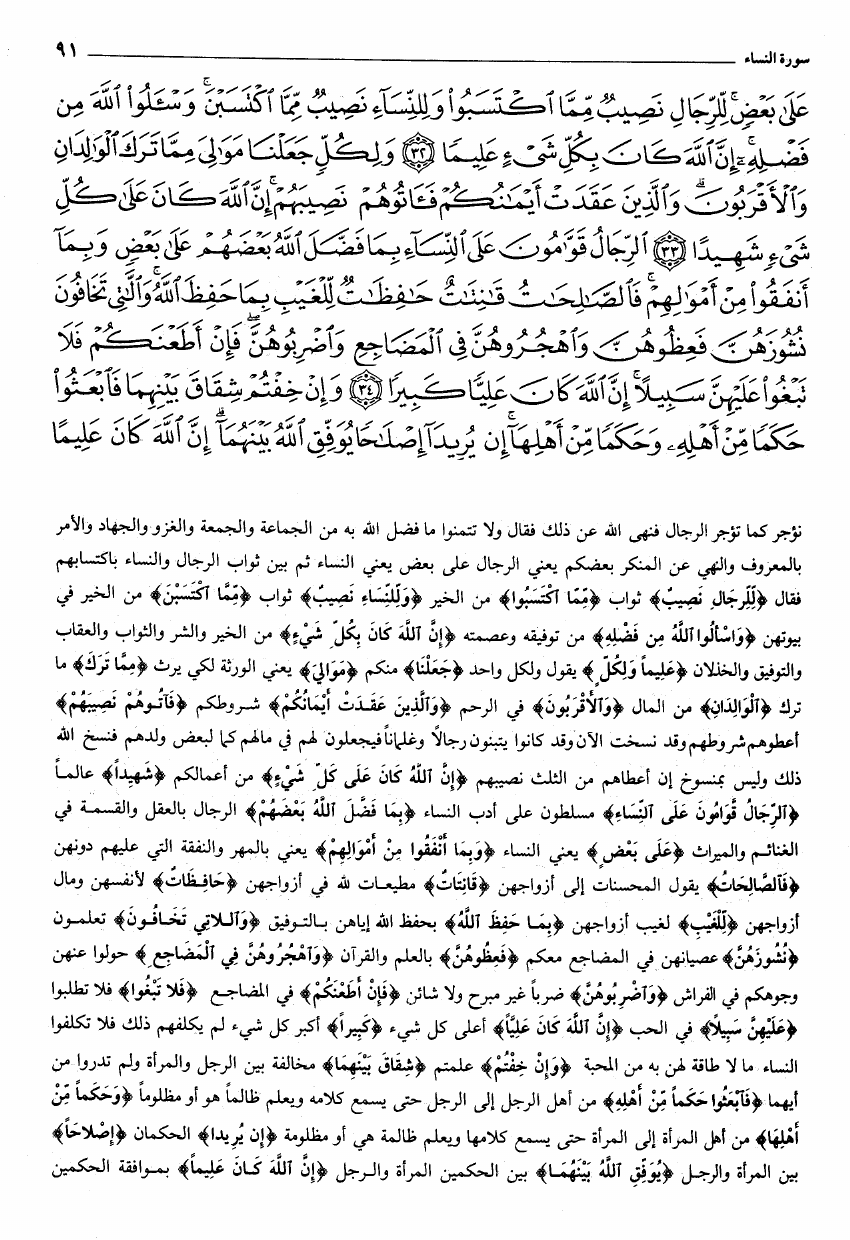 سورة النساء ٩١
عَلَىٰ بَعۡضٖۚ لِّلرِّجَالِ نَصِيبٞ مِّمَّا ٱكۡتَسَبُواْۖ وَلِلنِّسَآءِ نَصِيبٞ مِّمَّا ٱكۡتَسَبۡنَۚ وَسۡـَٔلُواْ ٱللَّهَ مِن
فَضۡلِهِۦٓۚ إِنَّ ٱللَّهَ كَانَ بِكُلِّ شَيۡءٍ عَلِيمٗا ٣٢ وَلِكُلّٖ جَعَلۡنَا مَوَٰلِيَ مِمَّا تَرَكَ ٱلۡوَٰلِدَانِ
وَٱلۡأَقۡرَبُونَۚ وَٱلَّذِينَ عَقَدَتۡ أَيۡمَٰنُكُمۡ فَـَٔاتُوهُمۡ نَصِيبَهُمۡۚ إِنَّ ٱللَّهَ كَانَ عَلَىٰ كُلِّ
شَيۡءٖ شَهِيدًا ٣٣ ٱلرِّجَالُ قَوَّٰمُونَ عَلَى ٱلنِّسَآءِ بِمَا فَضَّلَ ٱللَّهُ بَعۡضَهُمۡ عَلَىٰ بَعۡضٖ وَبِمَآ
أَنفَقُواْ مِنۡ أَمۡوَٰلِهِمۡۚ فَٱلصَّٰلِحَٰتُ قَٰنِتَٰتٌ حَٰفِظَٰتٞ لِّلۡغَيۡبِ بِمَا حَفِظَ ٱللَّهُۚ وَٱلَّٰتِي تَخَافُونَ
نُشُوزَهُنَّ فَعِظُوهُنَّ وَٱهۡجُرُوهُنَّ فِي ٱلۡمَضَاجِعِ وَٱضۡرِبُوهُنَّۖ فَإِنۡ أَطَعۡنَكُمۡ فَلَا
تَبۡغُواْ عَلَيۡهِنَّ سَبِيلًاۗ إِنَّ ٱللَّهَ كَانَ عَلِيّٗا كَبِيرٗا ٣٤ وَإِنۡ خِفۡتُمۡ شِقَاقَ بَيۡنِهِمَا فَٱبۡعَثُواْ
حَكَمٗا مِّنۡ أَهۡلِهِۦ وَحَكَمٗا مِّنۡ أَهۡلِهَآ إِن يُرِيدَآ إِصۡلَٰحٗا يُوَفِّقِ ٱللَّهُ بَيۡنَهُمَآۗ إِنَّ ٱللَّهَ كَانَ عَلِيمًا
نؤجر كما تؤجر الرجال فنهى الله عن ذلك فقال ولا تتمنوا ما فضل الله به من الجماعة والجمعة والغزو والجهاد والأمر
بالمعروف والنهي عن المنكر بعضكم يعني الرجال على بعض يعني النساء ثم بين ثواب الرجال والنساء باكتسابهم
فقال ﴿لِلرِّجَالِ نَصِيبٌ﴾ ثواب ﴿مِّمَّا اكْتَسَبُوا﴾ من الخير ﴿وَلِلنِّسَاءِ نَصِيبٌ﴾ ثواب ﴿مِّمَّا اكْتَسَبْنَ﴾ من الخير في
بيوتهن ﴿وَاسْأَلُوا اللَّهَ مِن فَضْلِهِ﴾ من توفيقه وعصمته ﴿إِنَّ اللَّهَ كَانَ بِكُلِّ شَيْءٍ﴾ من الخير والشر والثواب والعقاب
والتوفيق والخذلان ﴿عَلِيماً وَلِكُلٍّ﴾ يقول ولكل واحد ﴿جَعَلْنَا﴾ منكم ﴿مَوَالِيَ﴾ يعني الورثة لكي يرث ﴿مِمَّا تَرَكَ﴾ ما
ترك ﴿ٱلْوَالِدَانِ﴾ من المال ﴿وَٱلْأَقْرَبُونَ﴾ في الرحم ﴿وَٱلَّذِينَ عَقَدَتْ أَيْمَانُكُمْ﴾ شروطكم ﴿فَآتُوهُمْ نَصِيبَهُمْ﴾
أعطوهم شروطهم وقد نسخت الآن وقد كانوا يتبنون رجالاً وغلماناً فيجعلون لهم في مالهم كما لبعض ولدهم فنسخ الله
ذلك وليس بمنسوخ إن أعطاهم من الثلث نصيبهم ﴿إِنَّ ٱللَّهَ كَانَ عَلَى كُلِّ شَيْءٍ﴾ من أعمالكم ﴿شَهِيداً﴾ عالماً
﴿ٱلرِّجَالُ قَوَّامُونَ عَلَى ٱلنِّسَاءِ﴾ مسلطون على أدب النساء ﴿بِمَا فَضَّلَ ٱللَّهُ بَعْضَهُمْ﴾ الرجال بالعقل والقسمة في
الغنائم والميراث ﴿عَلَى بَعْضٍ﴾ يعني النساء ﴿وَبِمَا أَنْفَقُوا مِنْ أَمْوَالِهِمْ﴾ يعني بالمهر والنفقة التي عليهم دونهن
﴿فَٱلصَّالِحَاتُ﴾ يقول المحسنات إلى أزواجهن ﴿قَانِتَاتٌ﴾ مطيعات لله في أزواجهن ﴿حَافِظَاتٌ﴾ لأنفسهن ومال
أزواجهن ﴿لِلْغَيْبِ﴾ لغيب أزواجهن ﴿بِمَا حَفِظَ ٱللَّهُ﴾ بحفظ الله إياهن بالتوفيق ﴿وَٱللاتِي تَخَافُونَ﴾ تعلمون
﴿نُشُوزَهُنَّ﴾ عصيانهن في المضاجع معكم ﴿فَعِظُوهُنَّ﴾ بالعلم والقرآن ﴿وَٱهْجُرُوهُنَّ فِي ٱلْمَضَاجِعِ﴾ حولوا عنهن
وجوهكم في الفراش ﴿وَٱضْرِبُوهُنَّ﴾ ضرباً غير مبرح ولا شائن ﴿فَإِنْ أَطَعْنَكُمْ﴾ في المضاجع ﴿فَلا تَبْغُوا﴾ فلا تطلبوا
﴿عَلَيْهِنَّ سَبِيلاً﴾ في الحب ﴿إِنَّ ٱللَّهَ كَانَ عَلِيًّا﴾ أعلى كل شيء ﴿كَبِيراً﴾ أكبر كل شيء لم يكلفهم ذلك فلا تكلفوا
النساء ما لا طاقة لهن به من المحبة ﴿وَإِنْ خِفْتُمْ﴾ علمتم ﴿شِقَاقَ بَيْنِهِمَا﴾ مخالفة بين الرجل والمرأة ولم تدروا من
أيهما ﴿فَٱبْعَثُوا حَكَماً مِّنْ أَهْلِهِ﴾ من أهل الرجل إلى الرجل حتى يسمع كلامه ويعلم ظالماً هو أو مظلوماً ﴿وَحَكَماً مِّنْ
أَهْلِهَا﴾ من أهل المرأة إلى المرأة حتى يسمع كلامها ويعلم ظالمة هي أو مظلومة ﴿إِن يُرِيدا﴾ الحكمان ﴿إِصْلاحَاً﴾
بين المرأة والرجل ﴿يُوَفِّقِ ٱللَّهُ بَيْنَهُمَا﴾ بين الحكمين المرأة والرجل ﴿إِنَّ ٱللَّهَ كَانَ عَلِيماً﴾ بموافقة الحكمين